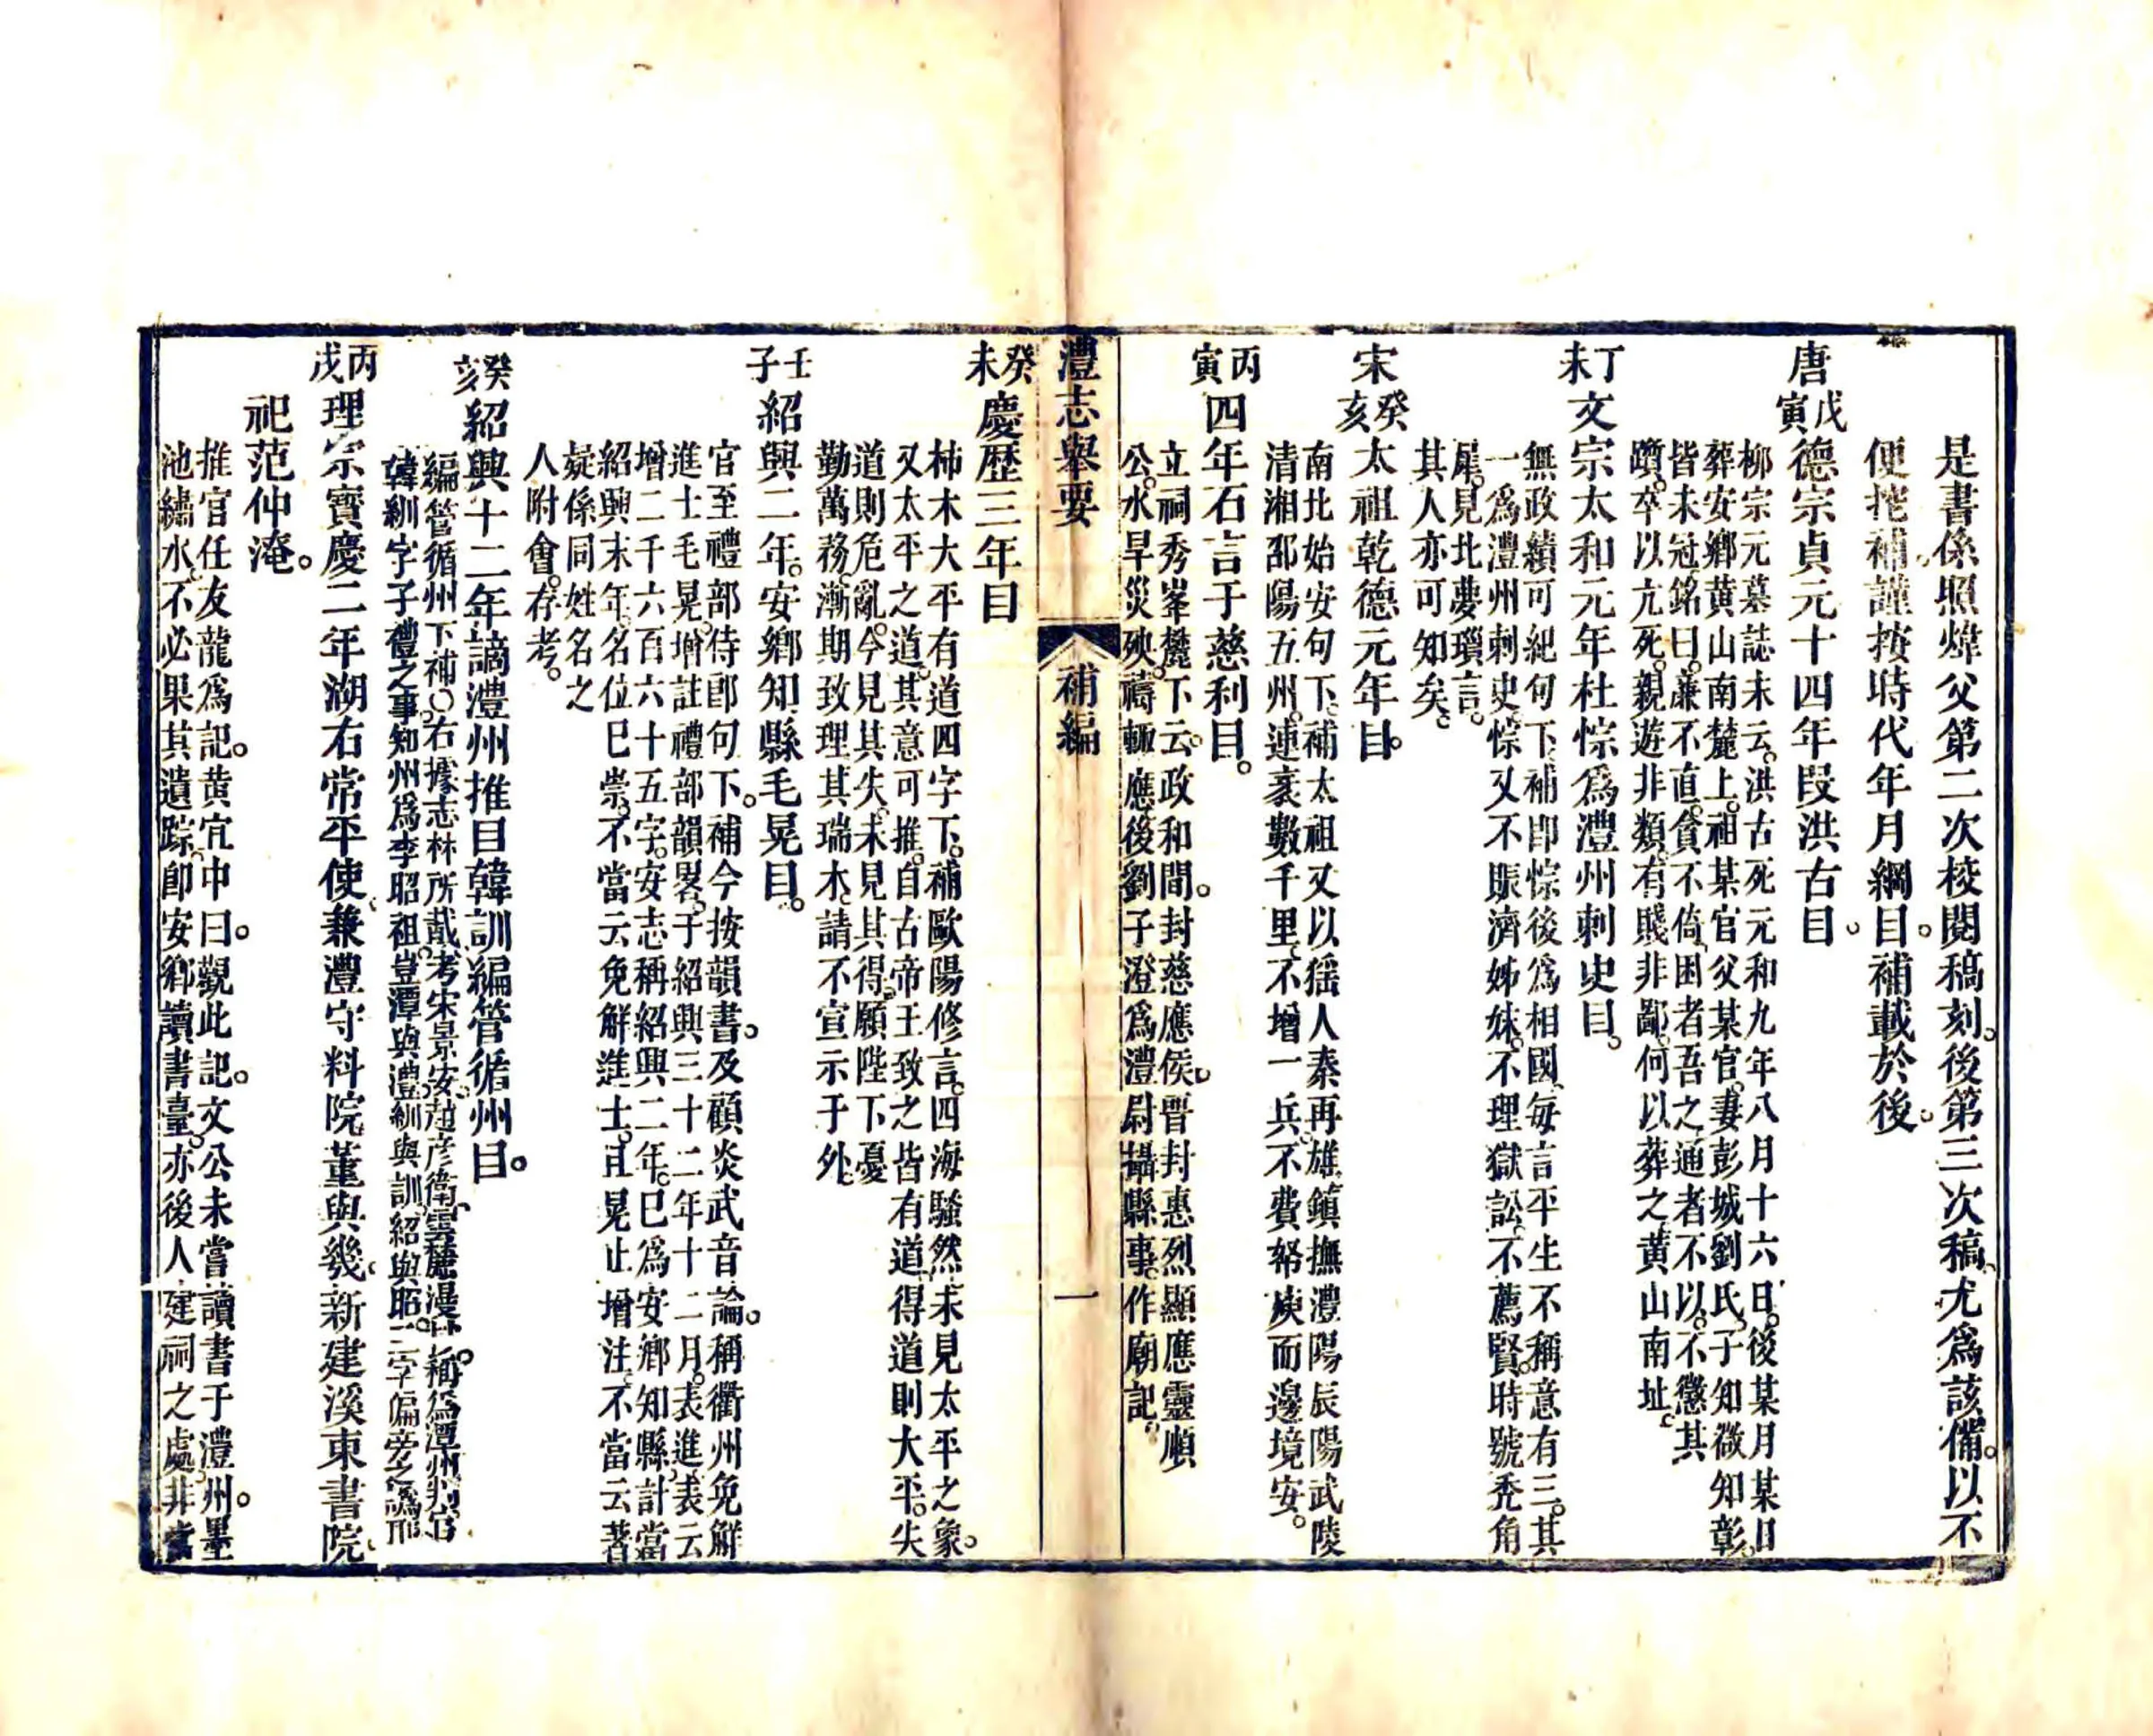 是書係照煒父第二次校閱稿刻。後第三次稿。尤爲該備。以不
便挖補。謹按時代年月綱目。補載於後。
唐戊寅德宗貞元十四年段洪古目。
柳宗元墓誌末云。洪古死元和九年八月十六日。後某月某日
葬安鄉黄山南麓上。祖某官父某官。妻彭城劉氏。子知微知彰。
皆未冠銘曰。廉不直。貧不倚。困者吾之。通者不以。不懲其
躓。卒以亢死。親遊非類。有賤非鄙。何以葬之。黄山南址。
丁未文宗太和元年杜悰爲澧州刺史目。
無政績可紀句下。補卽悰後爲相國。每言平生不稱意有三。其
一爲澧州刺史。悰又不賑濟姊妹。不理獄訟。不薦賢。時號秃角
犀。見北夢瑣言。
其人亦可知矣。
宋癸亥太祖乾德元年目。
南北始安句下。補太祖又以猺人秦再雄。鎮撫澧陽辰陽武陵
清湘邵陽五州。連袤數千里。不增一兵。不費帑庾而邊境安。
丙寅四年石言于慈利目。
立祠秀峯麓。下云。政和間。封慈應侯。晋封惠烈顯應靈順
公。水旱災殃。禱輒應。後劉子澄爲澧尉。攝縣事。作廟記。
澧志舉要 補編 一
癸未慶歷三年目
柿木大平有道四字下。補歐陽修言。四海騷然。未見太平之象。
又太平之道。其意可推。自古帝王致之皆有道。得道則大平。失
道則危亂。今見其失。未見其得。願陛下憂
勤萬務。漸期致理。其瑞木。請不宣示于外。
壬子紹興二年。安鄉知縣毛晃目。
官至禮部侍郎句下。補今按韻書。及顧炎武音論。稱衢州免解
進士毛晃。增註禮部韻畧。于紹興三十二年十二月。表進。表云
增二千六百六十五字。安志稱紹興二年。已爲安鄉知縣。計當
紹興末年。名位已崇。不當云免解進士。且晃止增注。不當云著
疑係同姓名之
人附會。存考。
癸亥紹興十二年謫澧州推目韓訓編管循州目。
編管循州下補〇右據志林所載。考宋景安。趙彦衛。雲麓漫抄。稱爲潭州判官
韓紃字子禮之事。知州爲李昭祖。豈潭與澧。紃與訓。紹與昭。二字偏旁之譌耶
丙戌理宗寳慶二年湖右常平使。兼澧守料院董與幾。新建溪東書院。
祀范仲淹。
推官任友龍爲記。黄宜中曰。觀此記。文公未嘗讀書于澧州。墨
池繡水。不必果其遺踪。卽安鄉讀書臺。亦後人建祠之處。非當